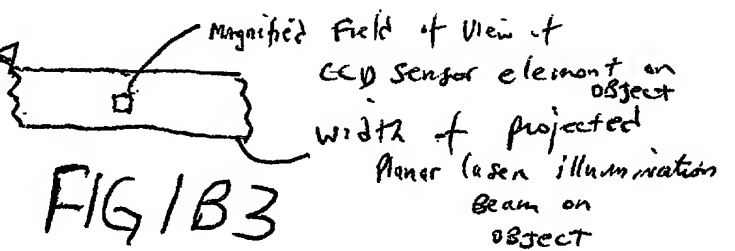 Magnified Field of View of
CCD sensor element on
OBJect
width of projected
Planar laser illumination
Beam on
OBJect
FIG 1B3